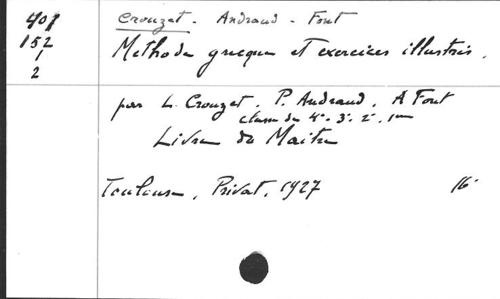 401
152
1
2
Crouzet - Andraud - Font
Méthode grecque et exercices illustrés.
par L. Crouzet, P. Andraud, A Font
classe de 4e. 3e. 2e. 1ère
Livre du Maître
Toulouse, Privat, 1927 16°